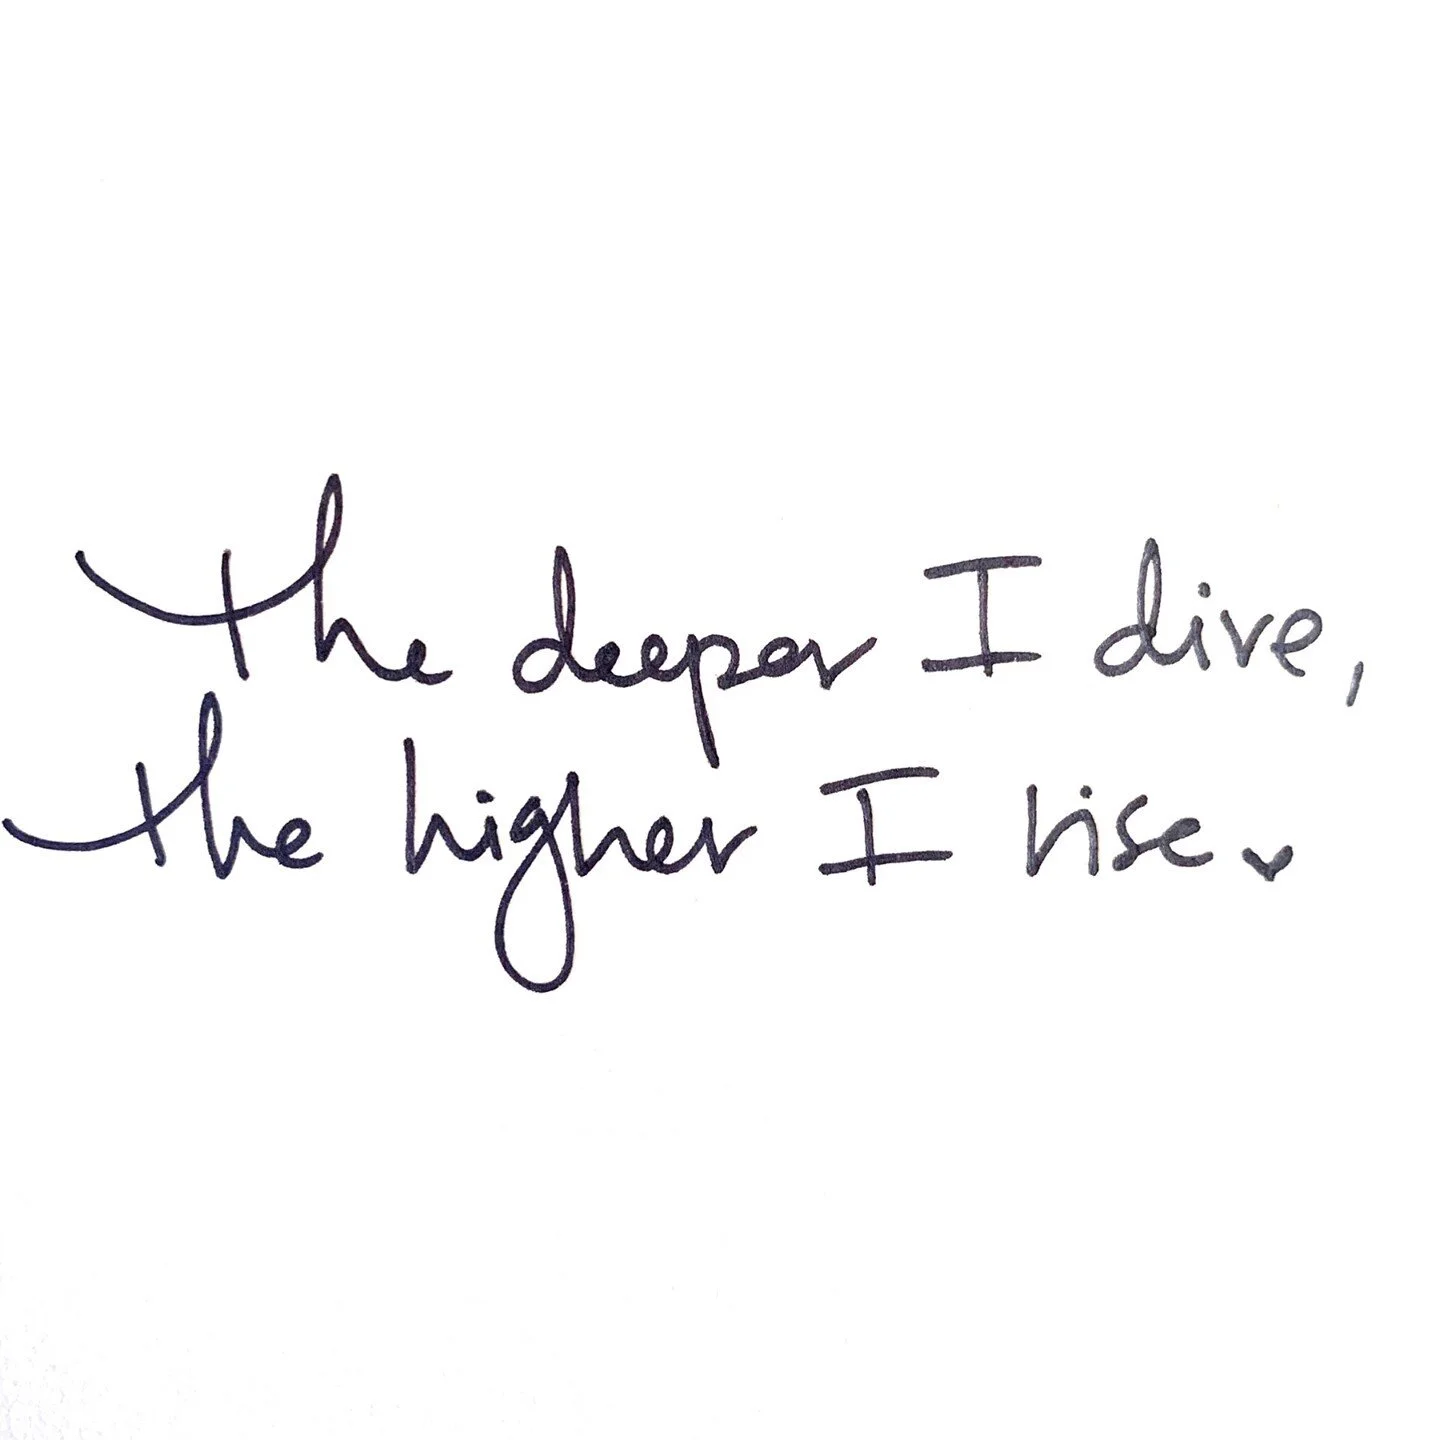 The deeper I dive,
the higher I rise♥